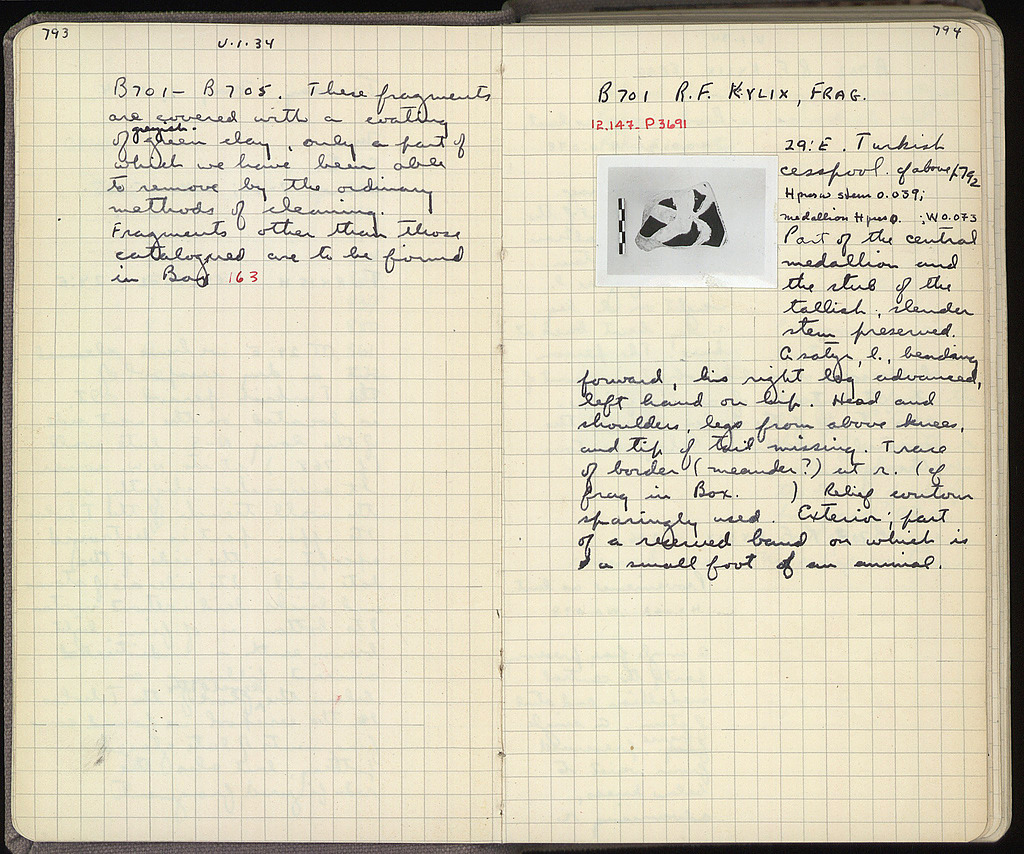 793
V.1.34
B701 - B705. These fragments
are covered with a coating
of greenish green clay, only a part of
which we have been able
to remove by the ordinary
methods of cleaning.
Fragments other than those
catalogued are to be found
in Box 163
794
B701 R.F. KYLIX, FRAG.
12.147. P 3691
29:E. Turkish
cesspool. cf above p. 792
H pres w stem 0.039;
medallion H pres 0. ; W 0.073
Part of the central
medallion and
the stub of the
tallish, slender
stem preserved.
A satyr, l., bending
forward, his right leg advanced,
left hand on hip. Head and
shoulders, legs from above knees,
and tip of tail missing. Trace
of border (meander?) at r. (cf
frag in Box. ) Relief contour
sparingly used. Exterior; part
of a reserved band on which is
a small foot of an animal.